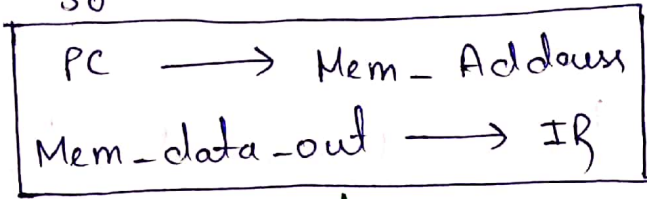 PC → Mem_Address
Mem_data_out → IR